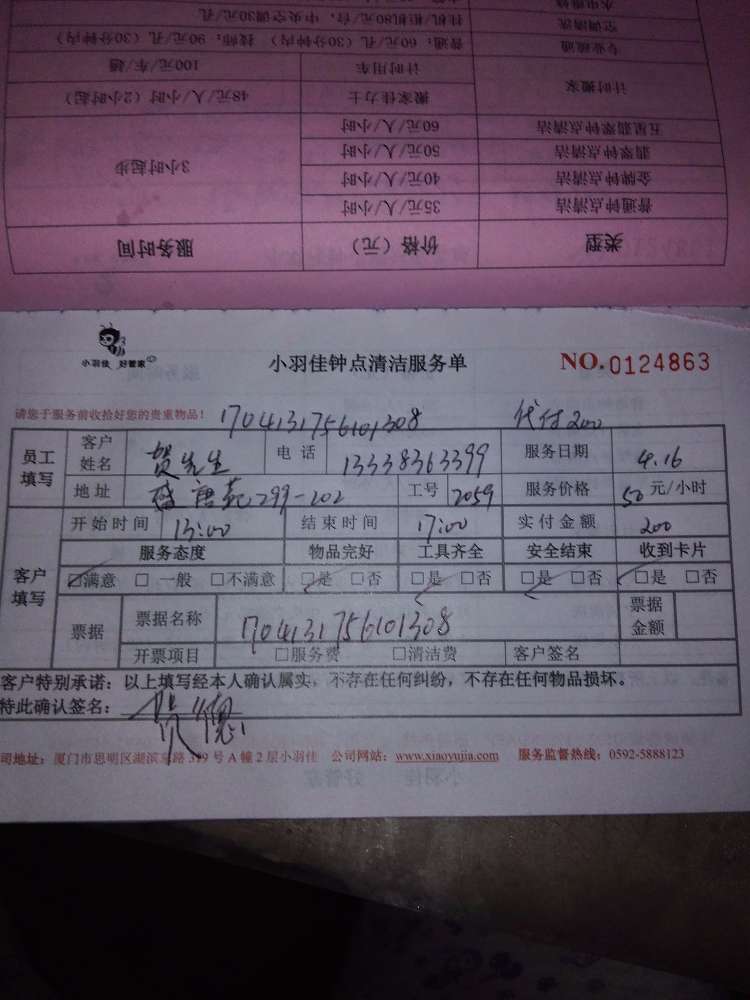 水电维修
空调清洗 挂机/柜机80元/台,中央空调30元/孔
专业疏通 普通:60元/孔(30分钟内) 技师:90元/孔(30分钟内)
计时搬家 计时用车 100元/车/趟
搬家佳力士 48元/人/小时(2小时起)
五星翡翠钟点清洁 60元/人/小时
翡翠钟点清洁 50元/人/小时 3小时起步
金牌钟点清洁 40元/人/小时
普通钟点清洁 35元/人/小时
类型 价格(元) 服务时间
小羽佳 好管家
小羽佳钟点清洁服务单 NO.0124863
请您于服务前收拾好您的贵重物品! 1704131756101308 代付200
员工填写 客户姓名 贺先生 电话 13338363399 服务日期 4.16
地址 盛唐苑299-102 工号 2059 服务价格 50元/小时
客户填写 开始时间 13:00 结束时间 17:00 实付金额 200
服务态度 物品完好 工具齐全 安全结束 收到卡片
□满意 □一般 □不满意 □是 □否 □是 □否 □是 □否 □是 □否
票据 票据名称 1704131756101308 票据金额
开票项目 □服务费 □清洁费 客户签名
客户特别承诺:以上填写经本人确认属实,不存在任何纠纷,不存在任何物品损坏。
特此确认签名:
司地址:厦门市思明区湖滨东路319号A幢2层小羽佳 公司网站:www.xiaoyujia.com 服务监督热线:0592-5888123